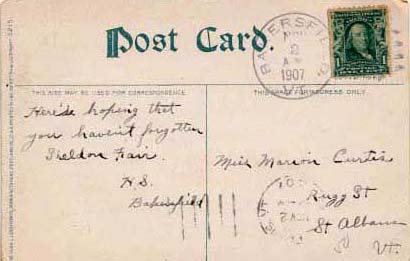 Post Card.
BAKERSFIELD
2
1907
1 1
THIS SIDE MAY BE USED FOR CORRESPONDENCE.
THIS SPACE FOR ADDRESS ONLY.
Here's hoping that
you havent forgotten
Sheldon Fair.
H.S.
Bakersfield
Miss Marion Curtis
Rugg St
St Albans
Vt.